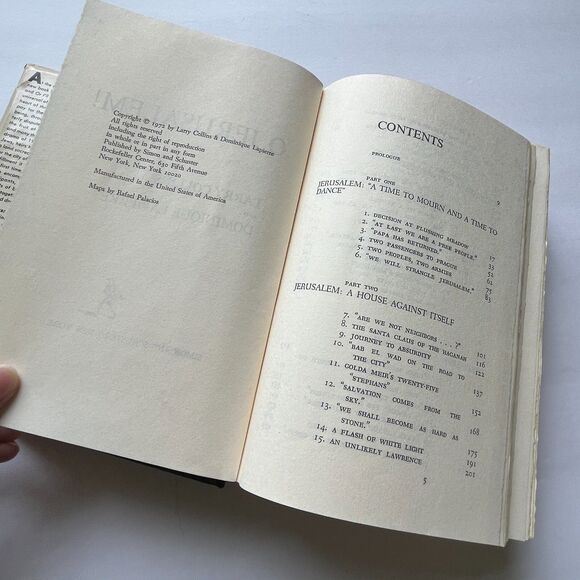 Copyright © 1972 by Larry Collins & Dominique Lapierre
All rights reserved
including the right of reproduction
in whole or in part in any form
Published by Simon and Schuster
Rockefeller Center, 630 Fifth Avenue
New York, New York 10020
Manufactured in the United States of America
Maps by Rafael Palacios
CONTENTS
PROLOGUE 9
PART ONE
JERUSALEM: "A TIME TO MOURN AND A TIME TO
DANCE"
1. DECISION AT FLUSHING MEADOW 17
2. "AT LAST WE ARE A FREE PEOPLE." 33
3. "PAPA HAS RETURNED." 52
4. TWO PASSENGERS TO PRAGUE 61
5. TWO PEOPLES, TWO ARMIES 75
6. "WE WILL STRANGLE JERUSALEM." 83
PART TWO
JERUSALEM: A HOUSE AGAINST ITSELF
7. "ARE WE NOT NEIGHBORS . . . ?" 101
8. THE SANTA CLAUS OF THE HAGANAH 116
9. JOURNEY TO ABSURDITY 122
10. "BAB EL WAD ON THE ROAD TO
THE CITY" 137
11. GOLDA MEIR'S TWENTY-FIVE
"STEPHANS" 152
12. "SALVATION COMES FROM THE
SKY." 168
13. "WE SHALL BECOME AS HARD AS
STONE." 175
14. A FLASH OF WHITE LIGHT 191
15. AN UNLIKELY LAWRENCE 201
5